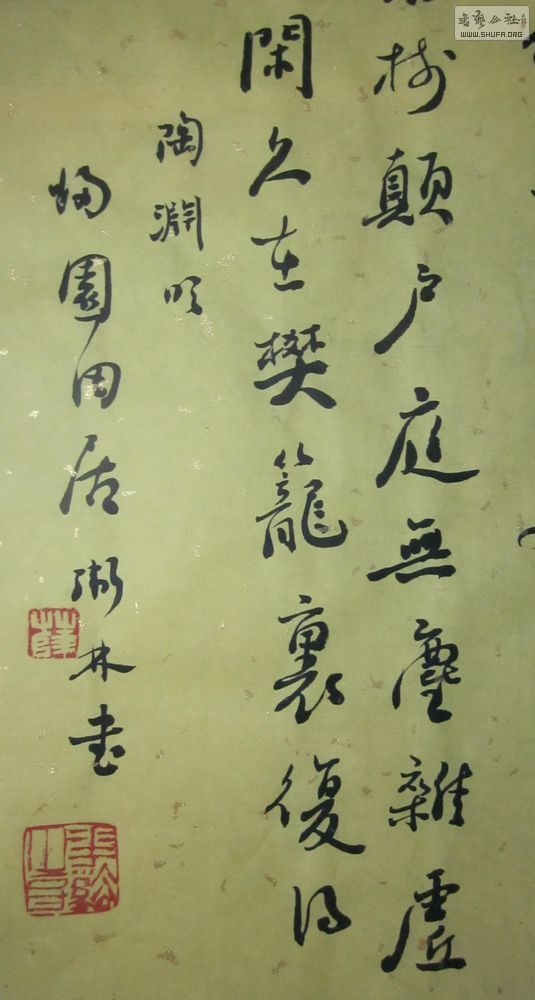 樹顛户庭無塵雜虛
閑久在樊籠裏復得
陶淵明
歸園田居 林書
書藝公社
WWW.SHUFA.ORG